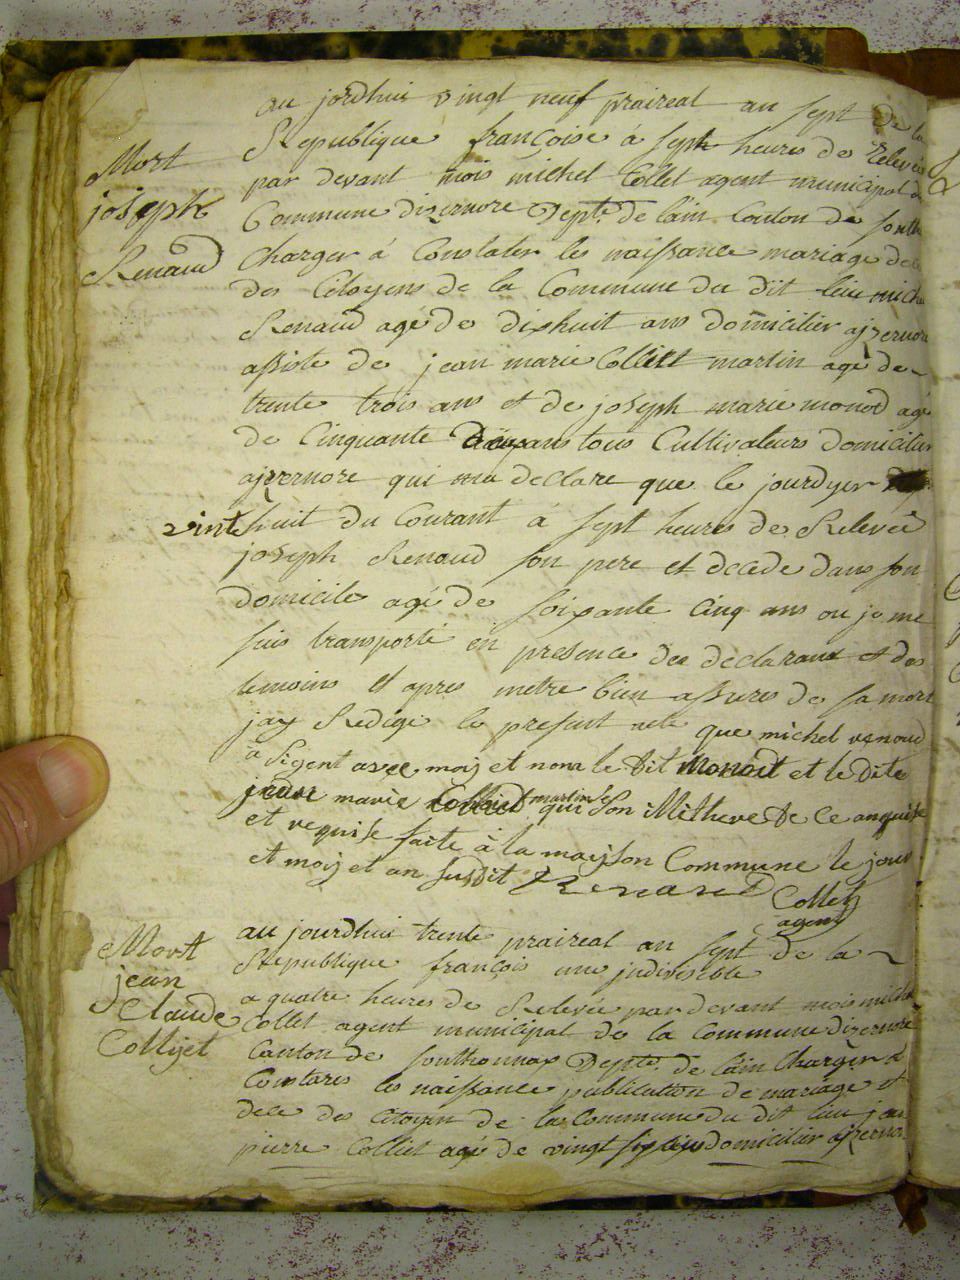 au jordhui vingt neuf praireal an sept de la
Republique françoise à sept heures de Relevée
par devant mois michel Collet agent municipal de
Commune dizernore Dept. de lain Canton de sonth
Charger à Constater les naissance mariage de
des Citoyens de la Commune du dit lieu michel
Renaud agé de dixhuit ans domicilier aizernore
assiste de jean marie Colliet martin agé de
trente trois ans et de joseph marie monod agé
de Cinquante ans tous Cultivateurs domicilier
ajzernore qui ma declare que le jourdyer
vint huit du Courant à sept heures de Relevée
joseph Renaud son pere et decede dans son
domicile agé de soixante Cinq ans ou je me
suis transporté en presence des declarant et des
temoins et apres metre bien assures de sa mort
jay Redigé le present acte que michel renoud
a Signet avec moy et nom le dit Monoit et le dite
jean marie Colliet martin qui Son Mitheve de ce anquise
et requise faite à la mayson Commune le jour
et moy et an susdit Renaud
Collet
agent
Mort
joseph
Renaud
au jourdhui trente praireal an sept de la
Republique françois une jndivisible
a quatre heures de Relevée par devant mois michel
Collet agent municipal de la Commune dizernore
Canton de sonthonnax Depte. de lain Charger a
Constares les naissance publication de mariage et
dece de Citoyen de la Commune du dit lieu jean
pierre Colliet agé de vingt domicilier ajzernor
Mort
jean
Claude
Collijet